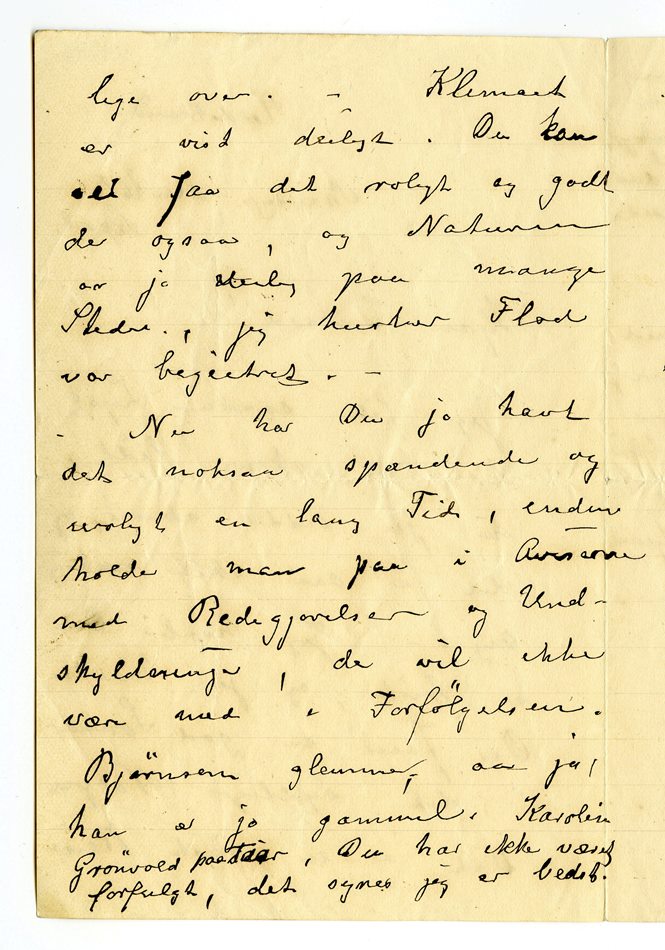 lige over. – Klimaet
er vist deiligt. Du kan
vel faa det roligt og godt
der ogsaa, og Naturen
er ja deilig paa mange
Steder., jeg husker Flod
var begeistret. –
– Nu har Du jo havt
det noksaa spændende og
uroligt en lang Tid, endnu
holder man paa i Aviserne
med Redegjørelser og Und-
skyldninger, de vil ikke
være med i Forfölgelsen.
Bjørnson glemmer, aa ja,
han er jo gammel. Karoline
Grönvold paastaar, Du har ikke været
forfulgt, det synes jeg er bedst.